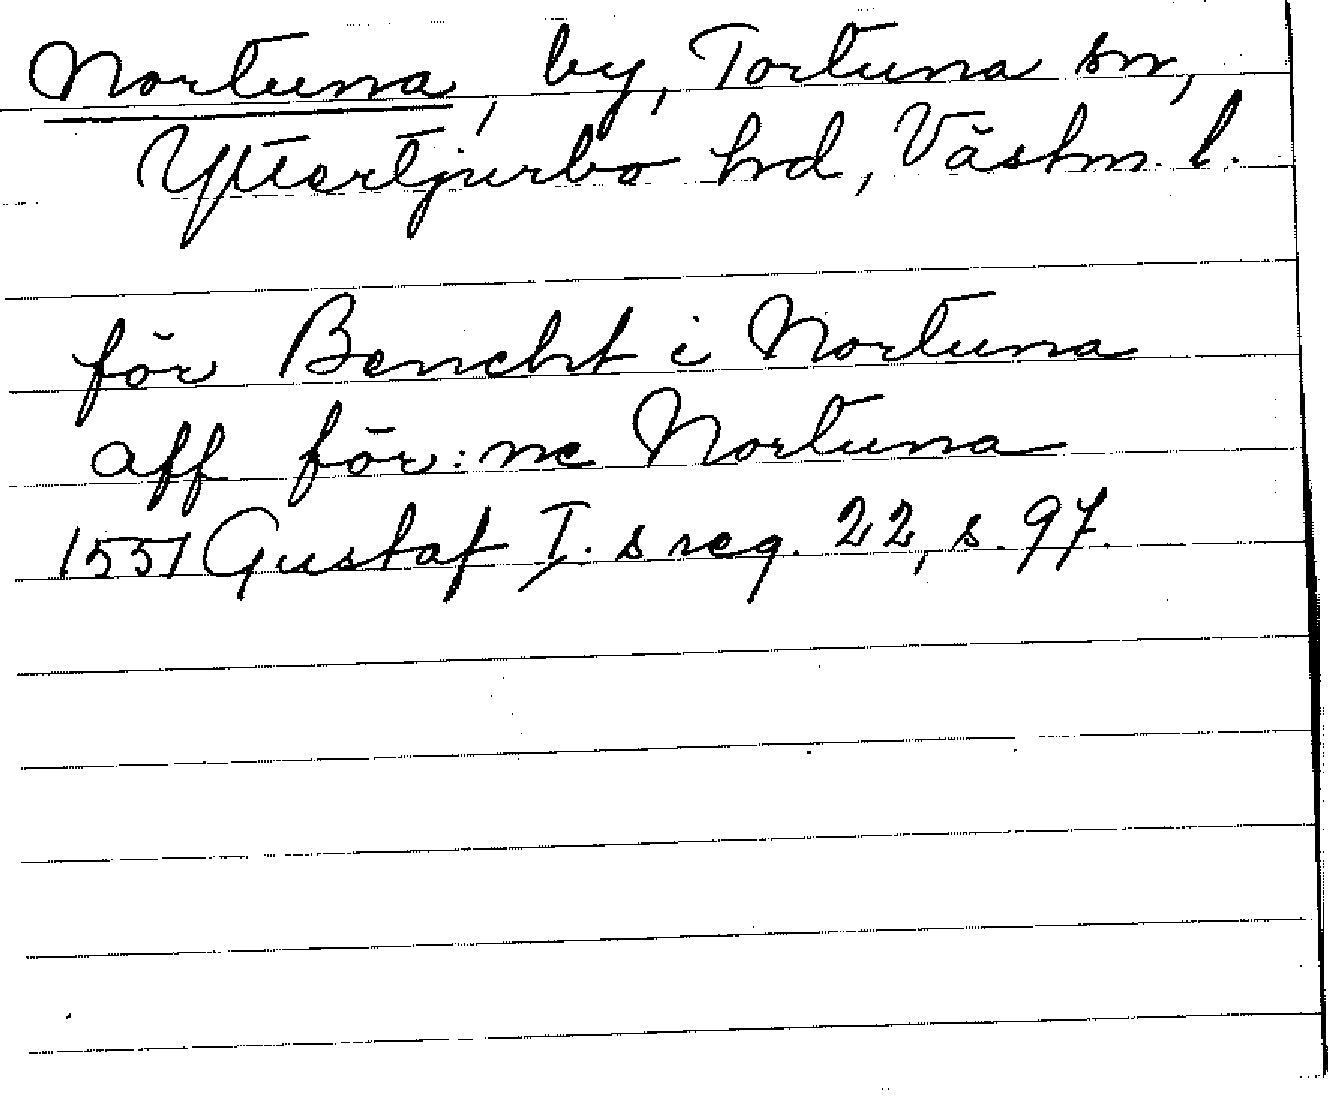 Nortuna, by, Tortuna sn,
Yttertjurbo hrd, Västm. l.
för Bencht i Nortuna
aff för:ne Nortuna
1551 Gustaf I. s reg. 22, s. 97.